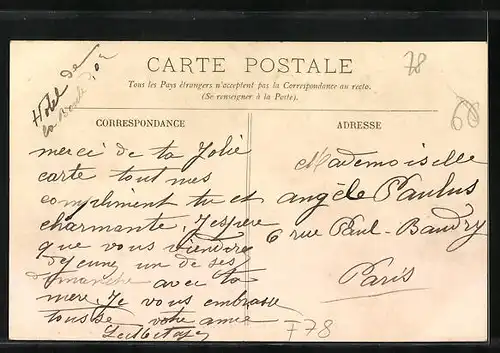 Hotel de
la Boule d'or
78
CARTE POSTALE
Tous les Pays étrangers n'acceptent pas la Correspondance au recto.
(Se renseigner à la Poste).
CORRESPONDANCE
merci de ta Jolie
carte tout mes
compliment tu et
charmante, J'espère
que vous viendre
dejeune un de ses
dimanche avec ta
mere, Je vous embrasse
votre amie
ADRESSE
Mademoiselle
angèle Paulus
6 rue Paul-Baudry
Paris
F78